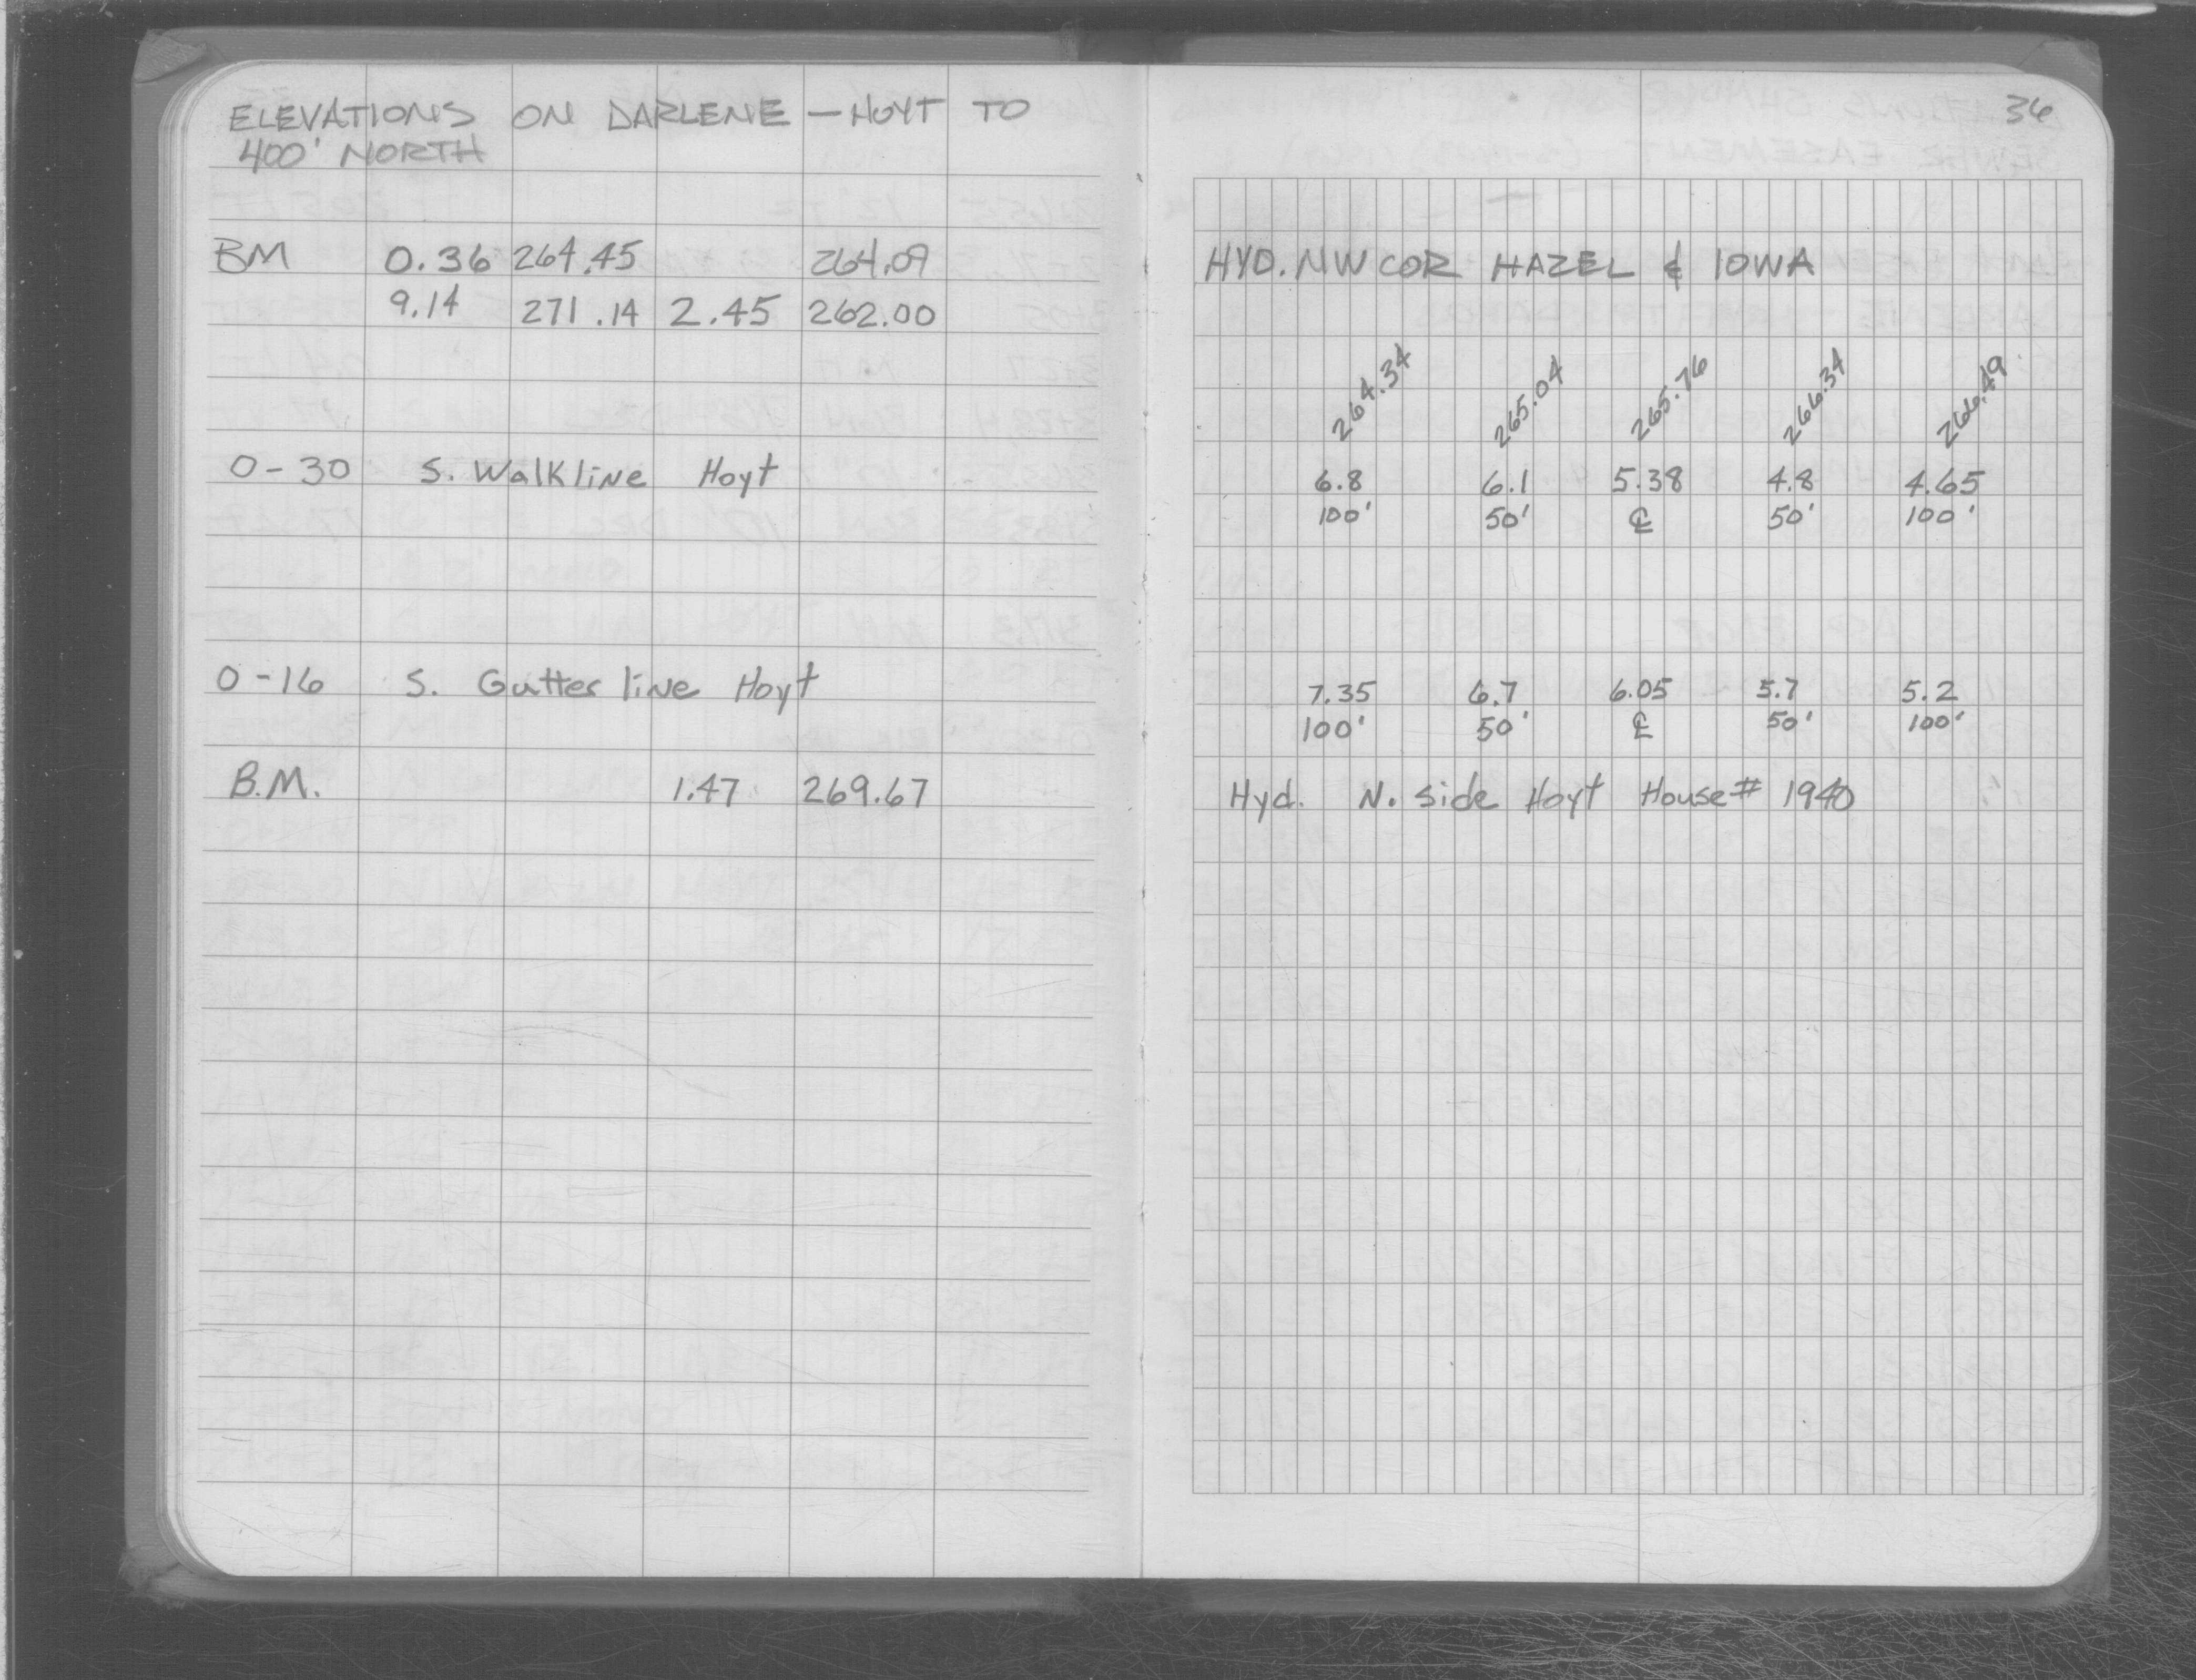 ELEVATIONS ON DARLENE — HOYT TO
400' NORTH
BM 0.36 264.45 264.09
9.14 271.14 2.45 262.00
0-30 S. Walkline Hoyt
0-16 S. Gutter line Hoyt
B.M. 1.47 269.67
36
HYD. NW COR HAZEL & IOWA
264.34 265.04 265.76 266.34 266.49
6.8 6.1 5.38 4.8 4.65
100' 50' ℄ 50' 100'
7.35 6.7 6.05 5.7 5.2
100' 50' ℄ 50' 100'
Hyd. N. side Hoyt House# 1940